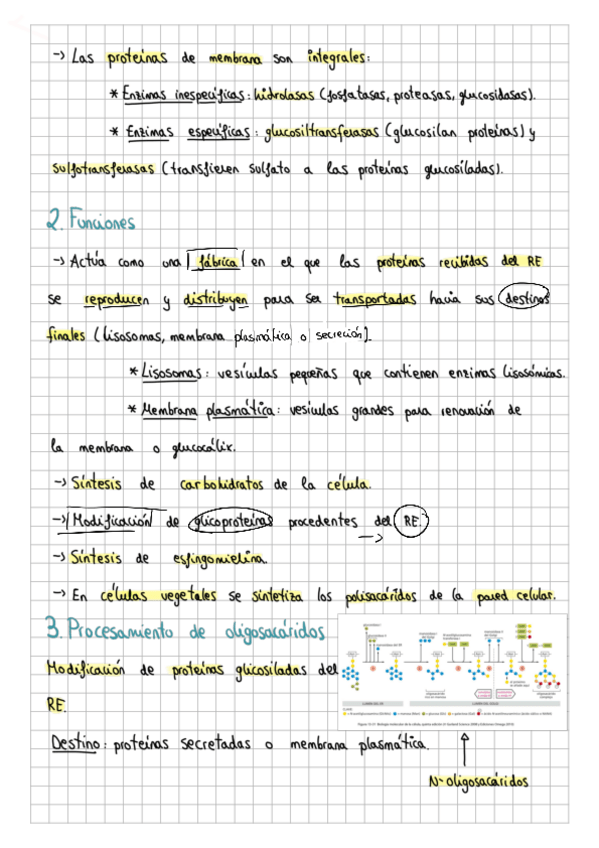 -> Las proteínas de membrana son integrales:
* Enzimas inespecíficas: hidrolasas (fosfatasas, proteasas, glucosidasas).
* Enzimas específicas: glucosiltransferasas (glucosilan proteínas) y
sulfotransferasas (transfieren sulfato a las proteínas glucosiladas).
2. Funciones
-> Actúa como una fábrica en el que las proteínas recibidas del RE
se reproducen y distribuyen para ser transportadas hacia sus destinos
finales (lisosomas, membrana plasmática o secreción).
* Lisosomas: vesículas pequeñas que contienen enzimas lisosómicas.
* Membrana plasmática: vesículas grandes para renovación de
la membrana o glucocálix.
-> Síntesis de carbohidratos de la célula.
-> Modificación de glicoproteínas procedentes del RE.
->
-> Síntesis de esfingomielina.
-> En células vegetales se sintetiza los polisacáridos de la pared celular.
3. Procesamiento de oligosacáridos
Modificación de proteínas glicosiladas del
RE.
Destino: proteínas secretadas o membrana plasmática.
N-oligosacáridos